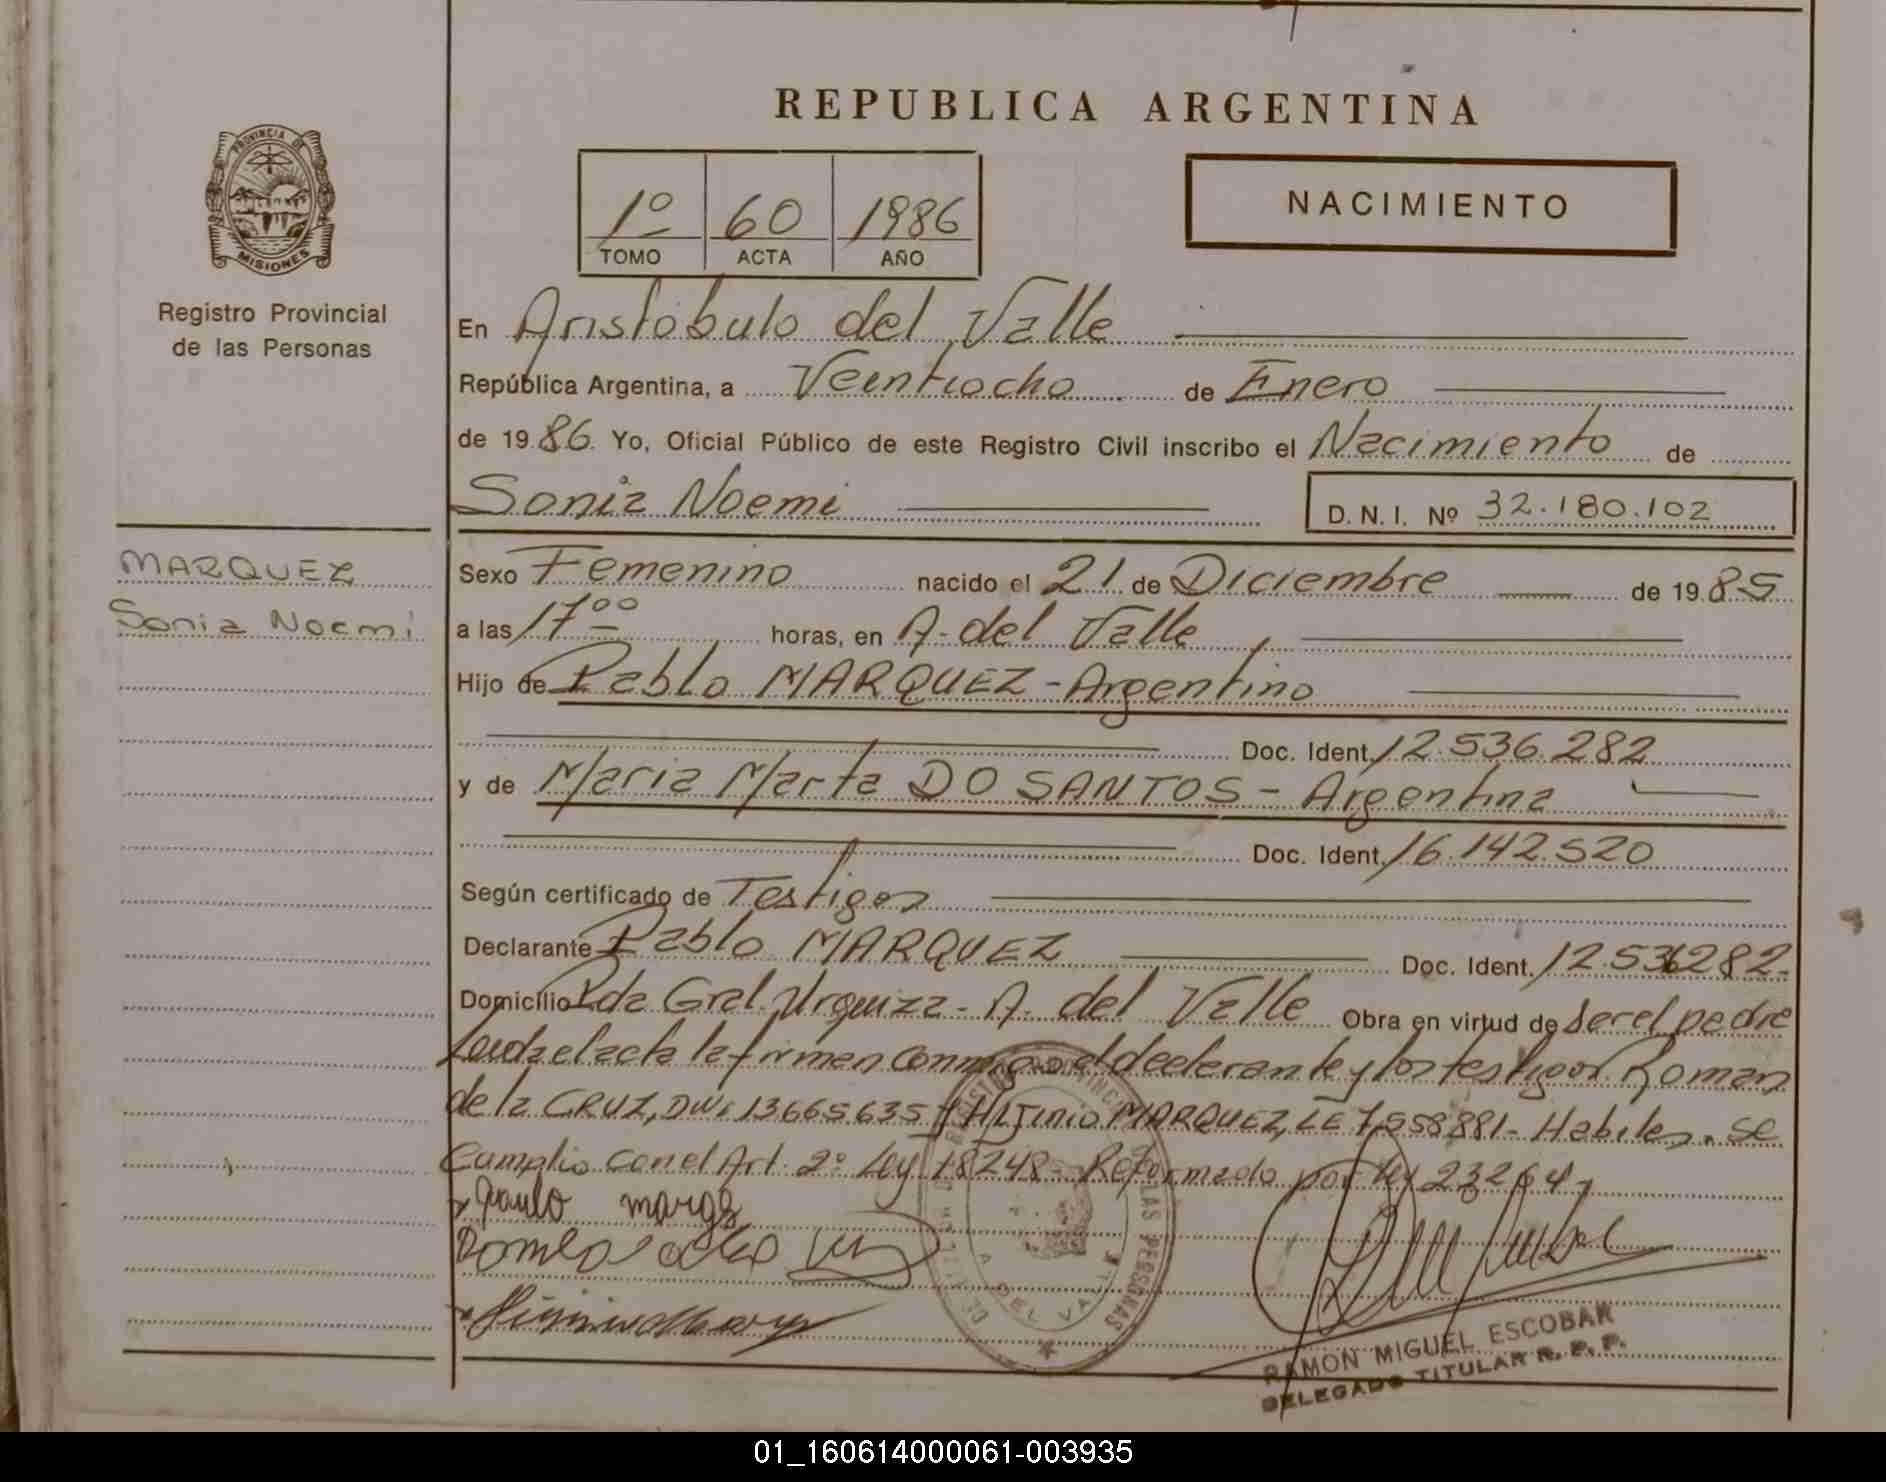 PROVINCIA DE
MISIONES
Registro Provincial
de las Personas
MARQUEZ
Sonia Noemi
REPUBLICA ARGENTINA
1º 60 1986
TOMO ACTA AÑO
NACIMIENTO
En Aristobulo del Valle
República Argentina, a Veintiocho de Enero
de 1986. Yo, Oficial Público de este Registro Civil inscribo el Nacimiento de
Sonia Noemi D. N. I. Nº 32.180.102
Sexo Femenino nacido el 21 de Diciembre de 1985
a las 17ºº horas, en A. del Valle
Hijo de Pablo MARQUEZ - Argentino
Doc. Ident. 12.536.282
y de Maria Marta DO SANTOS - Argentina
Doc. Ident. 16.142.520
Según certificado de Testigos
Declarante Pablo MARQUEZ Doc. Ident. 12.536282-
Domicilio Pda Gral. Urquiza - A. del Valle Obra en virtud de ser el padre
Leida el acta la firmen conmigo el declarante y los testigos Roman
de la CRUZ, DNI 13665635 y Higinio MARQUEZ, LE 7.558881- Habiles. Se
Cumplio con el Art. 2º Ley 18248- Reformado por Ley 23264,
RAMON MIGUEL ESCOBAR
DELEGADO TITULAR R. P. P.
01_160614000061-003935